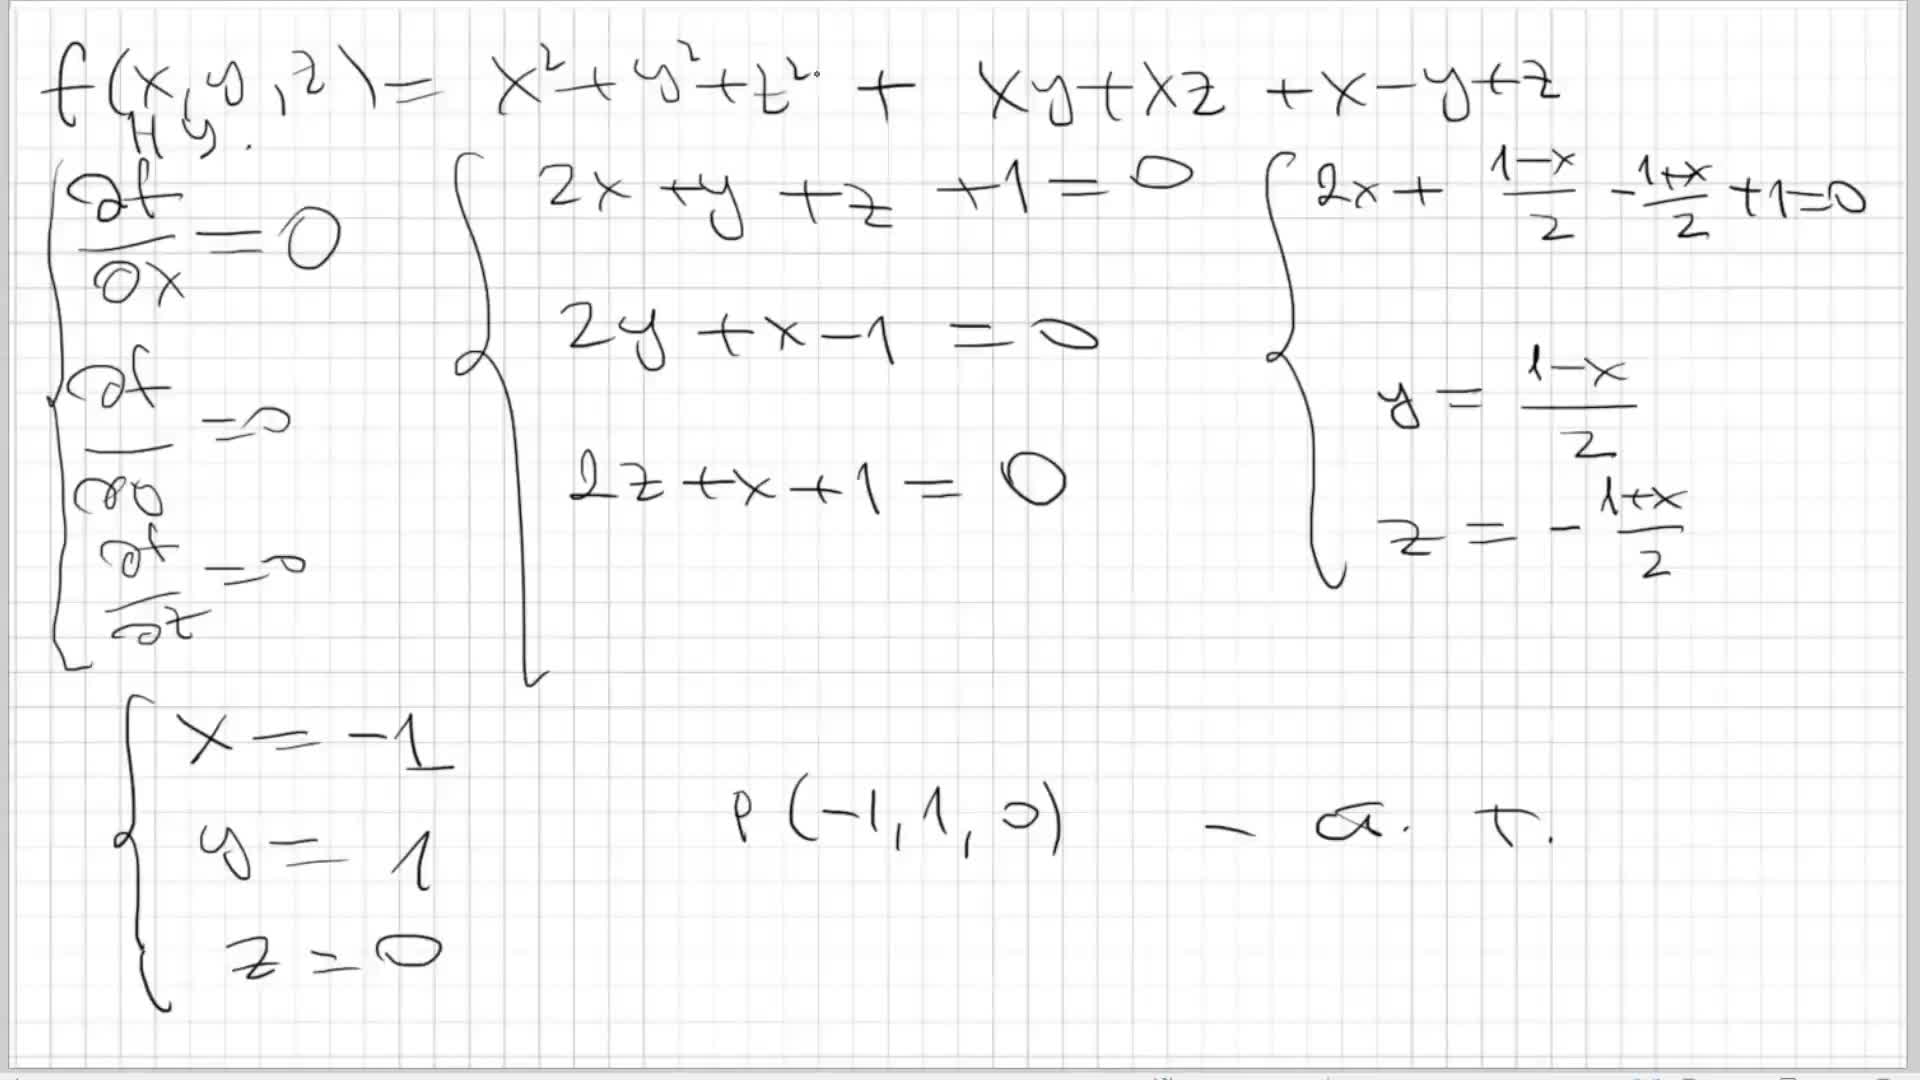 f(x,y,z) = x² + y² + z² + xy + xz + x - y + z
НУ.
∂f/∂x = 0
∂f/∂y = 0
∂f/∂z = 0
2x + y + z + 1 = 0
2y + x - 1 = 0
2z + x + 1 = 0
2x + (1-x)/2 - (1+x)/2 + 1 = 0
y = (1-x)/2
z = - (1+x)/2
x = -1
y = 1
z = 0
P(-1, 1, 0) -
т.